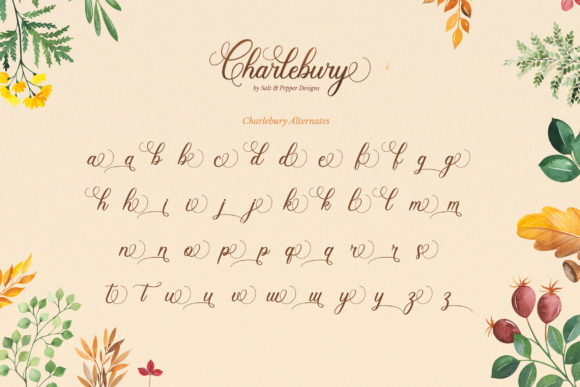 Charlebury
by Salt & Pepper Designs
Charlebury Alternates
a a b b c d d e f f g g
h h i i j j k k l l m m
n n o p p q q r r s
t t u u v w w y y z z